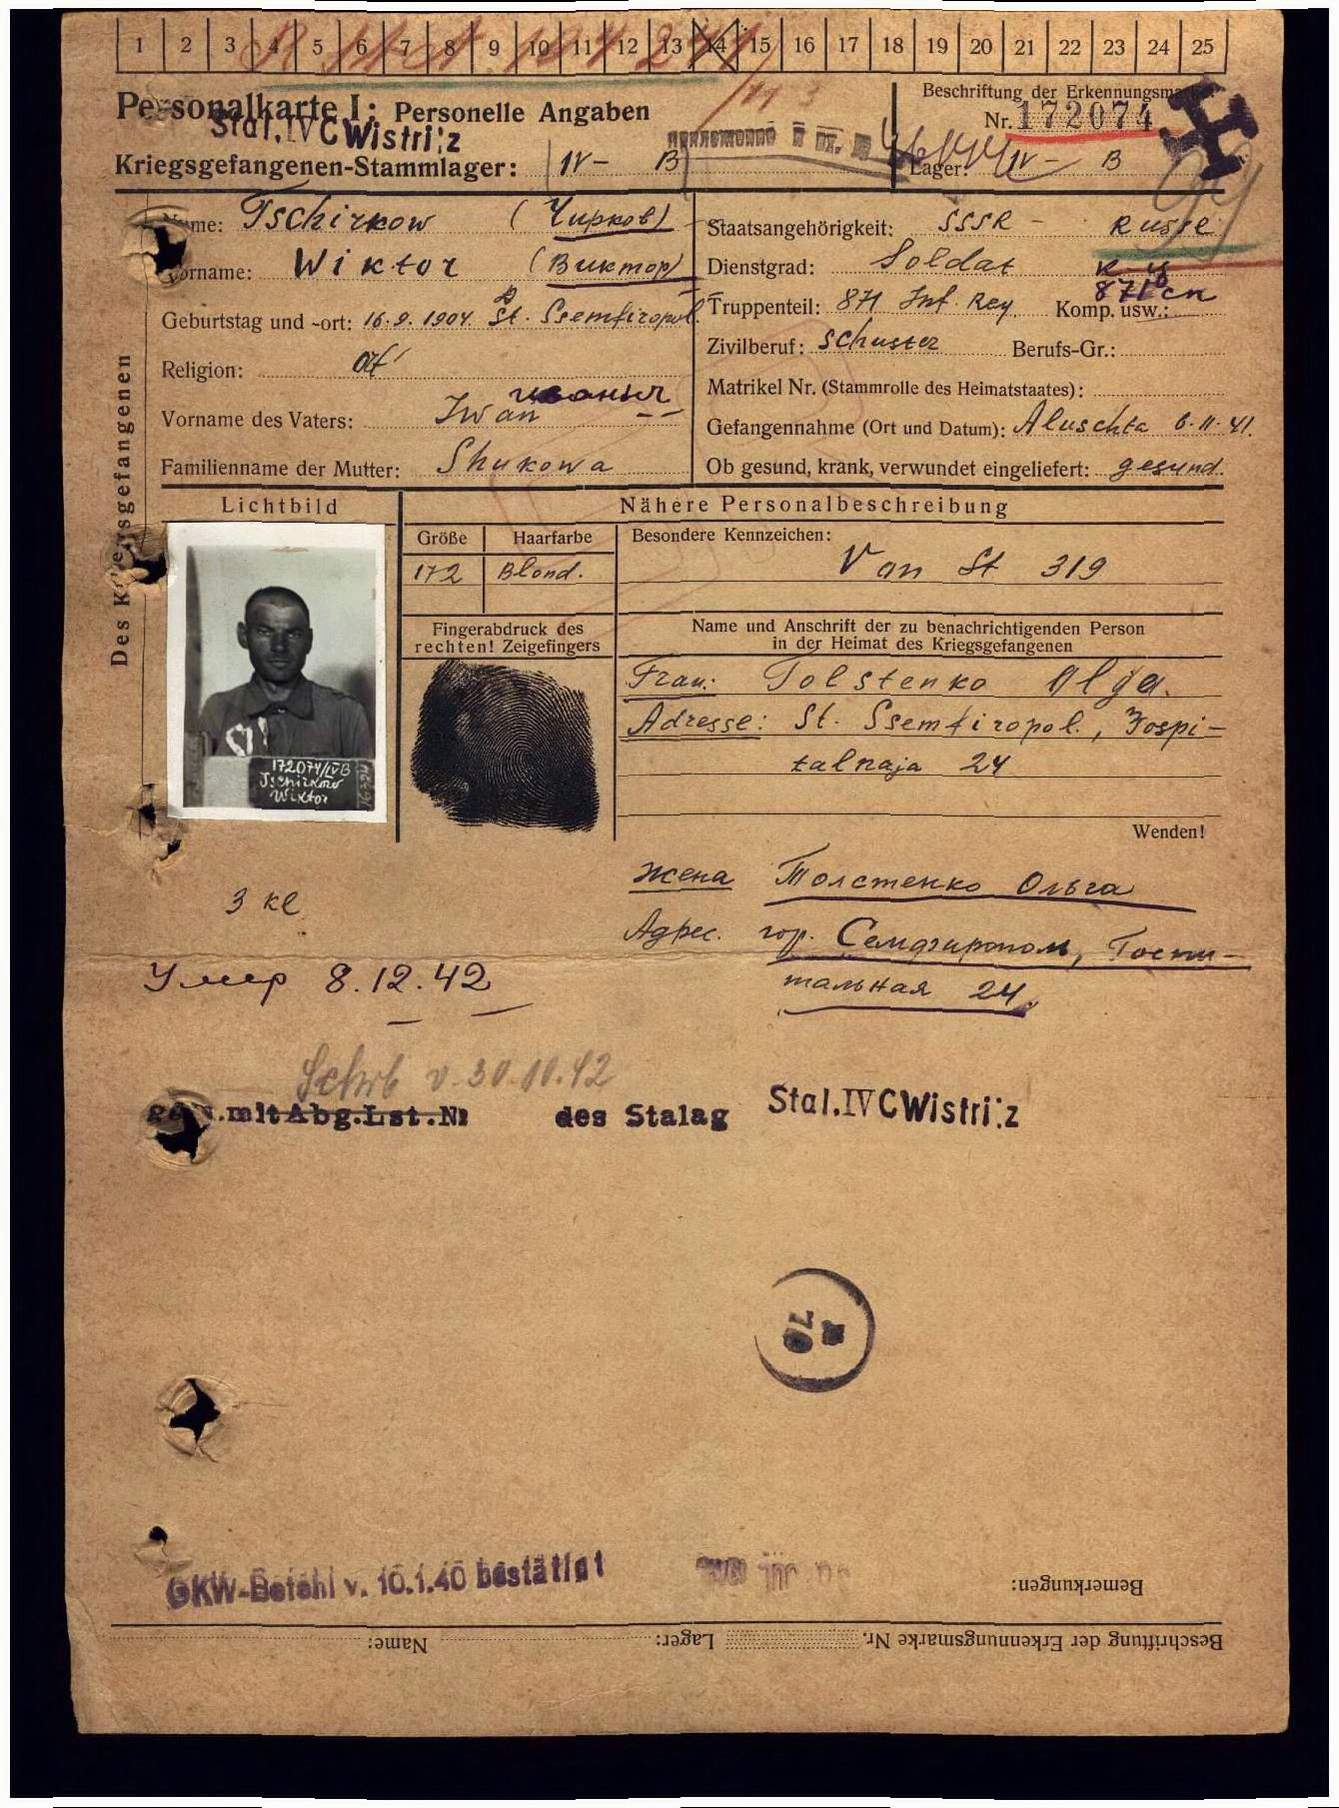 1 2 3 4 5 6 7 8 9 10 11 12 13 14 15 16 17 18 19 20 21 22 23 24 25
Personalkarte I: Personelle Angaben
Beschriftung der Erkennungsmarke
Nr. 172074
Stal.IVCWistri:z
Kriegsgefangenen-Stammlager: IV- B
Lager: IV- B
Des Kriegsgefangenen
Name: Tschirkow (Чирков)
Vorname: Wiktor (Виктор)
Geburtstag und -ort: 16.9.1904. St. Ssemfiropol.
Religion:
Vorname des Vaters: Iwan
Familienname der Mutter: Shukowa
Staatsangehörigkeit: SSSR - Russe
Dienstgrad: Soldat
871 сп
Truppenteil: 871 Inf. Reg. Komp. usw.:
Zivilberuf: Schuster Berufs-Gr.:
Matrikel Nr. (Stammrolle des Heimatstaates):
Gefangennahme (Ort und Datum): Aluschta 6.11.41.
Ob gesund, krank, verwundet eingeliefert: gesund.
Lichtbild
172074/IVB
Tschirkow
Wiktor
Nähere Personalbeschreibung
Größe Haarfarbe
172 Blond.
Besondere Kennzeichen:
Van St 319
Fingerabdruck des
rechten! Zeigefingers
Name und Anschrift der zu benachrichtigenden Person
in der Heimat des Kriegsgefangenen
Frau: Tolstenko Olga.
Adresse: St. Ssemfiropol., Jospi-
talnaja 24
Wenden!
жена Толстенко Ольга
Адрес. гор. Семфирополь, Госпи-
тальная 24.
3 кл
Умер 8.12.42
Schrb v. 30.10.42
gem.mit Abg.Lst.Nr des Stalag Stal.IVCWistri:z
70
OKW-Befehl v. 10.1.40 bestätigt
Bemerkungen:
Beschriftung der Erkennungsmarke Nr. Lager: Name: